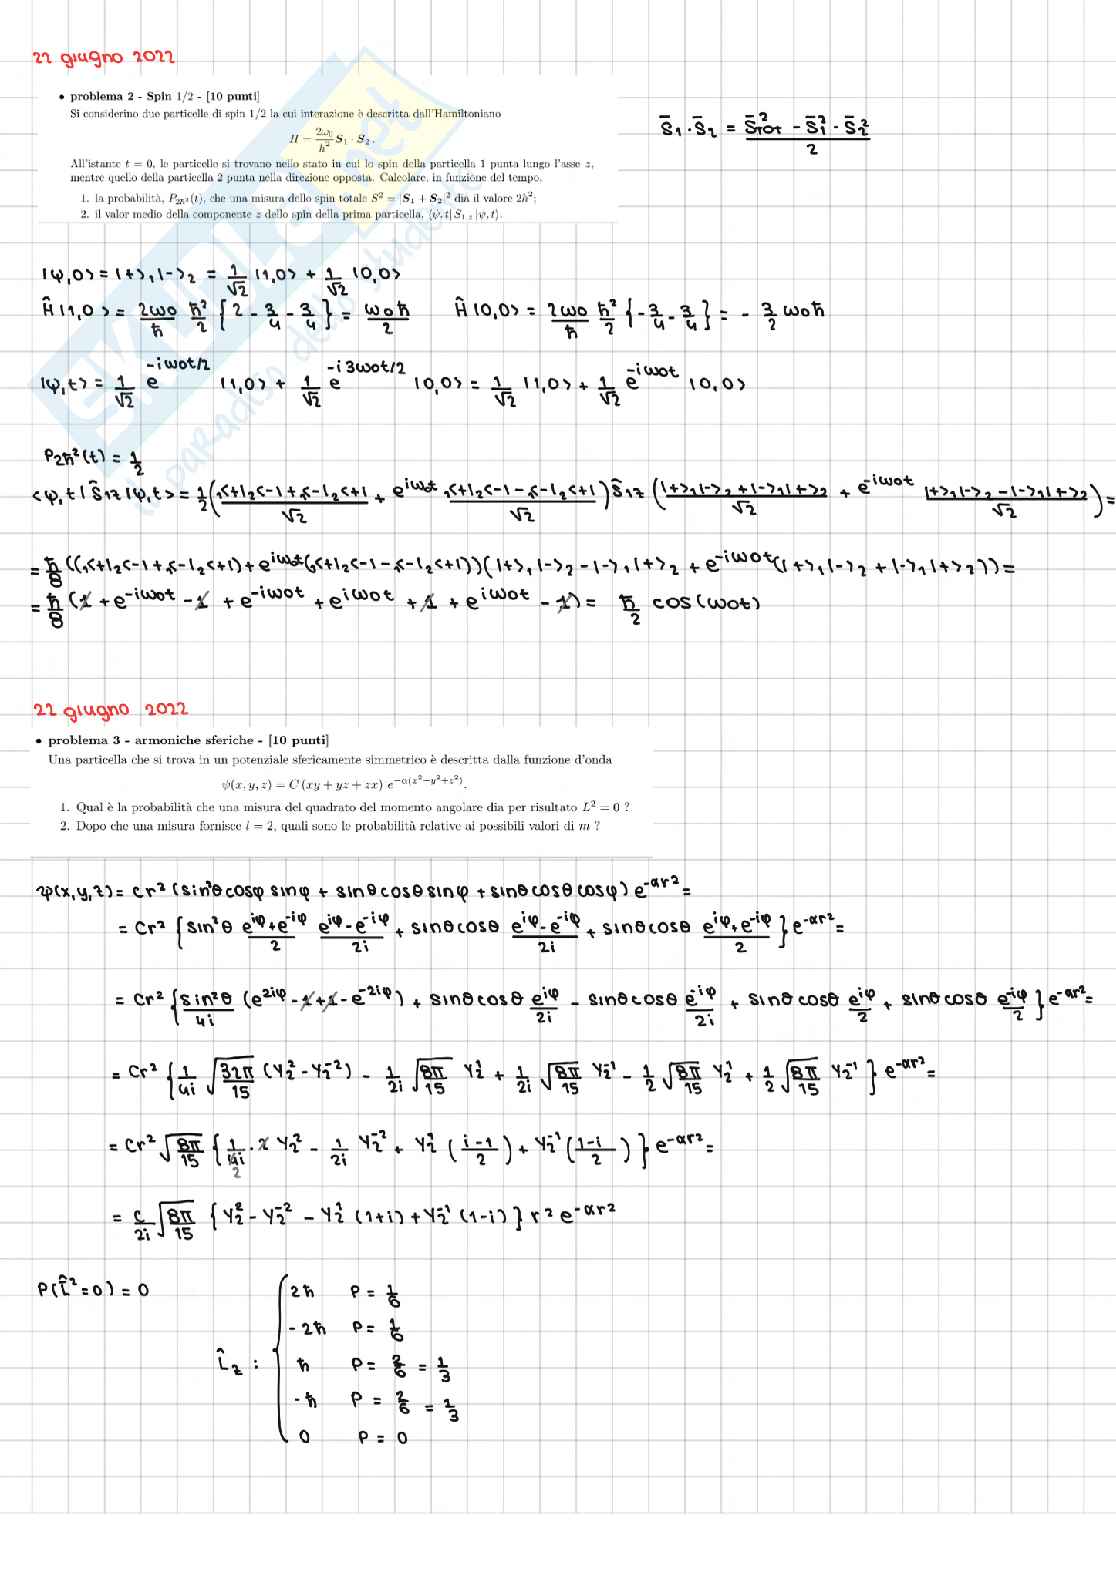 22 giugno 2022
• problema 2 - Spin 1/2 - [10 punti]
Si considerino due particelle di spin 1/2 la cui interazione è descritta dall'Hamiltoniano
H = 2ω₀/ħ² S₁ · S₂ .
S̄₁·S̄₂ = (S̄²TOT - S̄₁² - S̄₂²)/2
All'istante t = 0, le particelle si trovano nello stato in cui lo spin della particella 1 punta lungo l'asse z,
mentre quello della particella 2 punta nella direzione opposta. Calcolare, in funzione del tempo,
1. la probabilità, P₂ħ²(t), che una misura dello spin totale S² = |S₁ + S₂|² dia il valore 2ħ²;
2. il valor medio della componente z dello spin della prima particella, ⟨ψ, t| S₁ z |ψ, t⟩.
|ψ,0> = |+>₁|->₂ = 1/√2 |1,0> + 1/√2 |0,0>
Ĥ|1,0> = 2ω₀/ħ ħ²/2 [2 - 3/4 - 3/4] = ω₀ħ/2 Ĥ|0,0> = 2ω₀/ħ ħ²/2 {-3/4 - 3/4} = - 3/2 ω₀ħ
|ψ,t> = 1/√2 e^(-iω₀t/2) |1,0> + 1/√2 e^(-i3ω₀t/2) |0,0> = 1/√2 |1,0> + 1/√2 e^(-iω₀t) |0,0>
P₂ħ²(t) = 1/2
<ψ,t|Ŝ₁z|ψ,t> = 1/2 ((₁<+|₂<-| + ₁<-|₂<+|)/√2 + e^(iω₀t) (₁<+|₂<-| - ₁<-|₂<+|)/√2) Ŝ₁z ((|+>₁|->₂ + |->₁|+>₂)/√2 + e^(-iω₀t) (|+>₁|->₂ - |->₁|+>₂)/√2) =
= ħ/8 ((₁<+|₂<-| + ₁<-|₂<+|) + e^(iω₀t)(₁<+|₂<-| - ₁<-|₂<+|))(|+>₁|->₂ - |->₁|+>₂ + e^(-iω₀t)(|+>₁|->₂ + |->₁|+>₂)) =
= ħ/8 (1 + e^(-iω₀t) - 1 + e^(-iω₀t) + e^(iω₀t) + 1 + e^(iω₀t) - 1) = ħ/2 cos(ω₀t)
22 giugno 2022
• problema 3 - armoniche sferiche - [10 punti]
Una particella che si trova in un potenziale sfericamente simmetrico è descritta dalla funzione d'onda
ψ(x, y, z) = C (xy + yz + zx) e^(-α(x²+y²+z²),
1. Qual è la probabilità che una misura del quadrato del momento angolare dia per risultato L² = 0 ?
2. Dopo che una misura fornisce l = 2, quali sono le probabilità relative ai possibili valori di m ?
ψ(x,y,z) = Cr² (sin²θ cosφ sinφ + sinθ cosθ sinφ + sinθ cosθ cosφ) e^(-αr²) =
= Cr² [sin²θ (e^(iφ)+e^(-iφ))/2 (e^(iφ)-e^(-iφ))/2i + sinθ cosθ (e^(iφ)-e^(-iφ))/2i + sinθ cosθ (e^(iφ)+e^(-iφ))/2 } e^(-αr²) =
= Cr² {sin²θ/4i (e^(2iφ) - 1 + 1 - e^(-2iφ)) + sinθ cosθ e^(iφ)/2i - sinθ cosθ e^(-iφ)/2i + sinθ cosθ e^(iφ)/2 + sinθ cosθ e^(-iφ)/2 } e^(-αr²) =
= Cr² {1/4i √(32π/15) (Y₂² - Y₂⁻²) - 1/2i √(8π/15) Y₂¹ + 1/2i √(8π/15) Y₂⁻¹ - 1/2 √(8π/15) Y₂¹ + 1/2 √(8π/15) Y₂⁻¹ } e^(-αr²) =
= Cr² √(8π/15) {1/4i · 2 Y₂² - 1/2i Y₂⁻² + Y₂¹ ((i-1)/2) + Y₂⁻¹ ((1-i)/2) } e^(-αr²) =
= C/2i √(8π/15) {Y₂² - Y₂⁻² - Y₂¹ (1+i) + Y₂⁻¹ (1-i) } r² e^(-αr²)
P(L̂²=0) = 0
L̂z :
2ħ P = 1/6
-2ħ P = 1/6
ħ P = 2/6 = 1/3
-ħ P = 2/6 = 1/3
0 P = 0